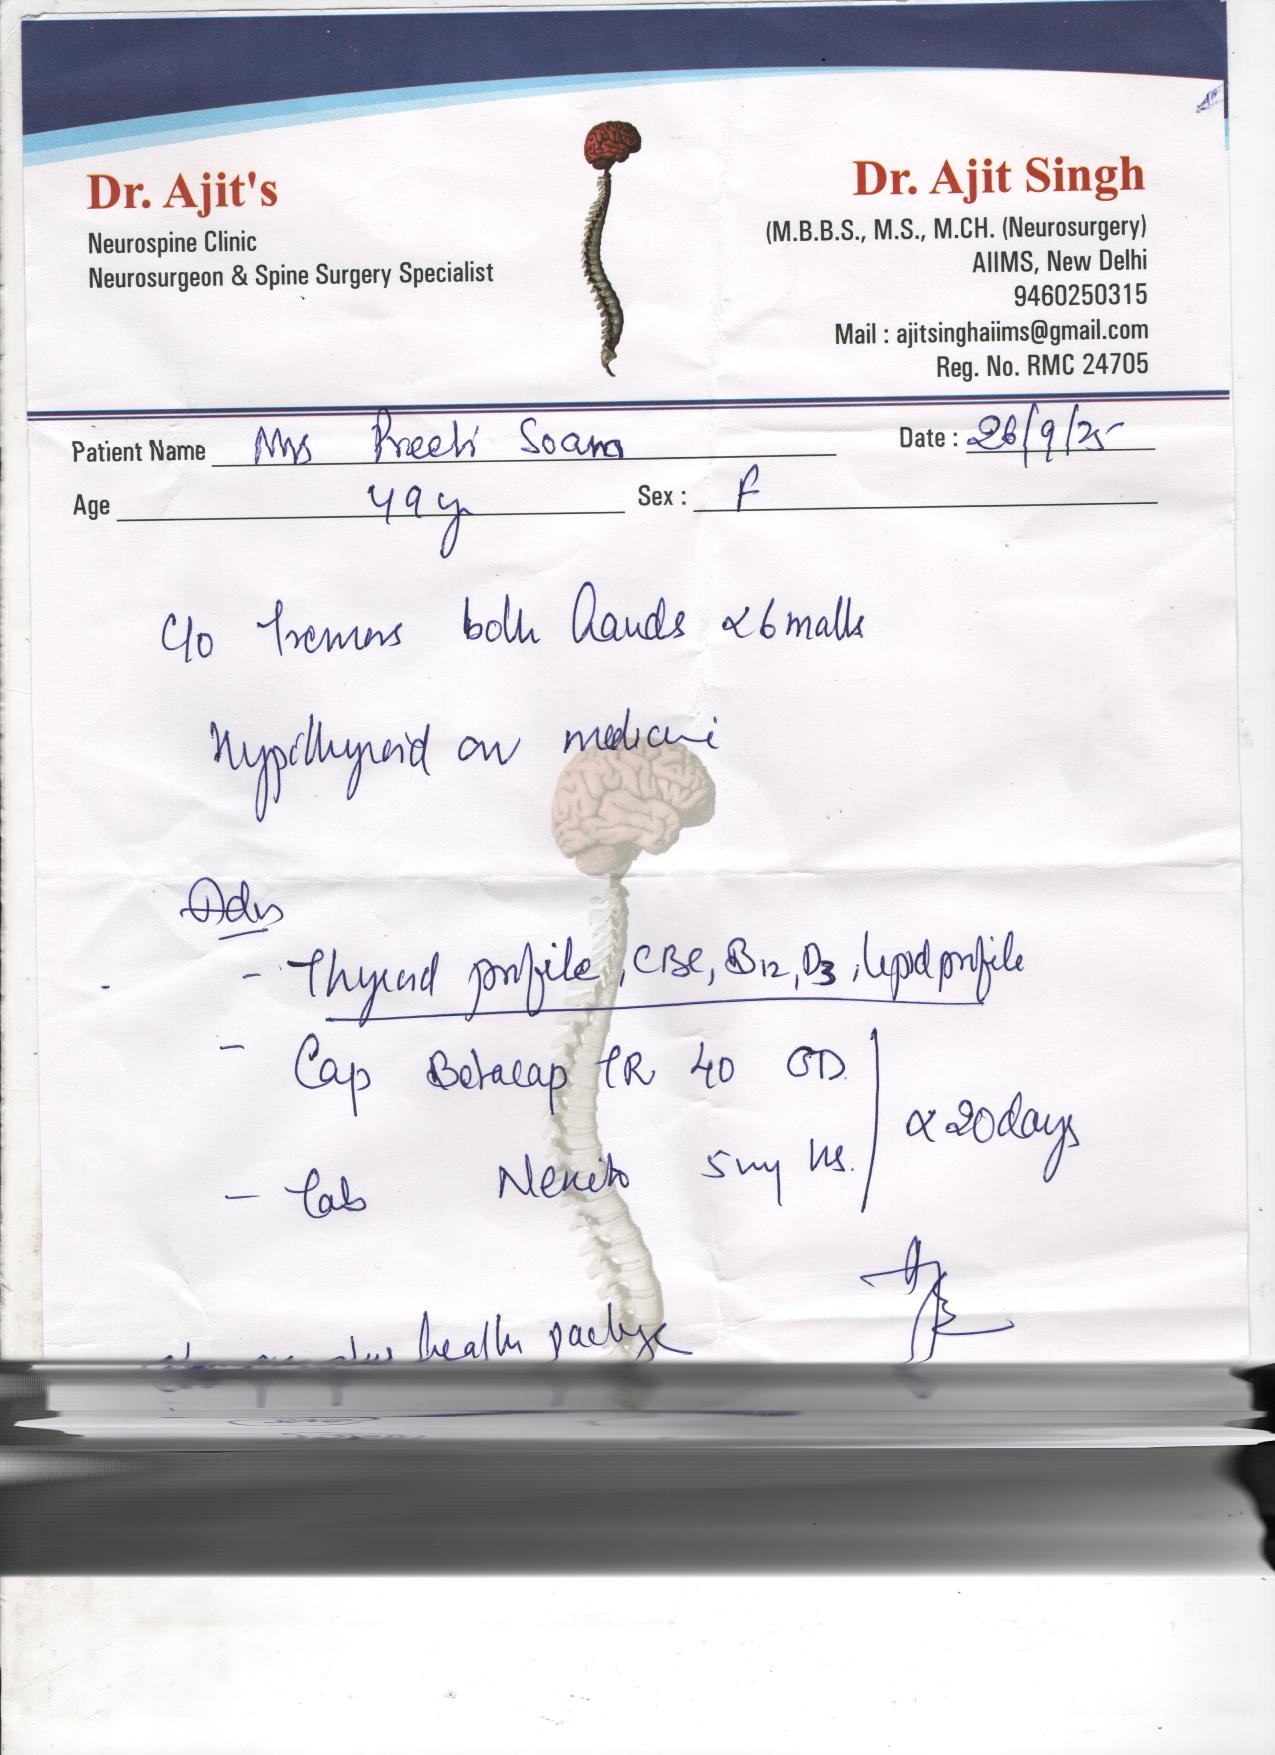 Dr. Ajit's
Neurospine Clinic
Neurosurgeon & Spine Surgery Specialist
Dr. Ajit Singh
(M.B.B.S., M.S., M.CH. (Neurosurgery)
AIIMS, New Delhi
9460250315
Mail : ajitsinghaiims@gmail.com
Reg. No. RMC 24705
Patient Name Mrs Preeti
Date : 26/9/25
Age 49 yr
Sex : F
C/O Tremors both hands x 6
Hypothyroid on medicine
Adv
- Thyroid profile, CBC, B12, D3, lipid profile
- Cap Betacap TR 40 OD
- Tab Nexito 5mg hs.
x 20 days
health package